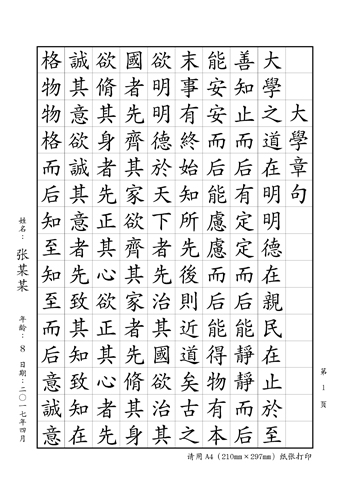 大學章句
大學之道在明明德在親民在止於至
善知止而后有定定而后能靜靜而后
能安安而后能慮慮而后能得物有本
末事有終始知所先後則近道矣古之
欲明明德於天下者先治其國欲治其
國者先齊其家欲齊其家者先脩其身
欲脩其身者先正其心欲正其心者先
誠其意欲誠其意者先致其知致知在
格物物格而后知至知至而后意誠意
姓名：张某某 年龄：8 日期：二〇一七年四月
第 1 页
请用A4（210mm×297mm）纸张打印